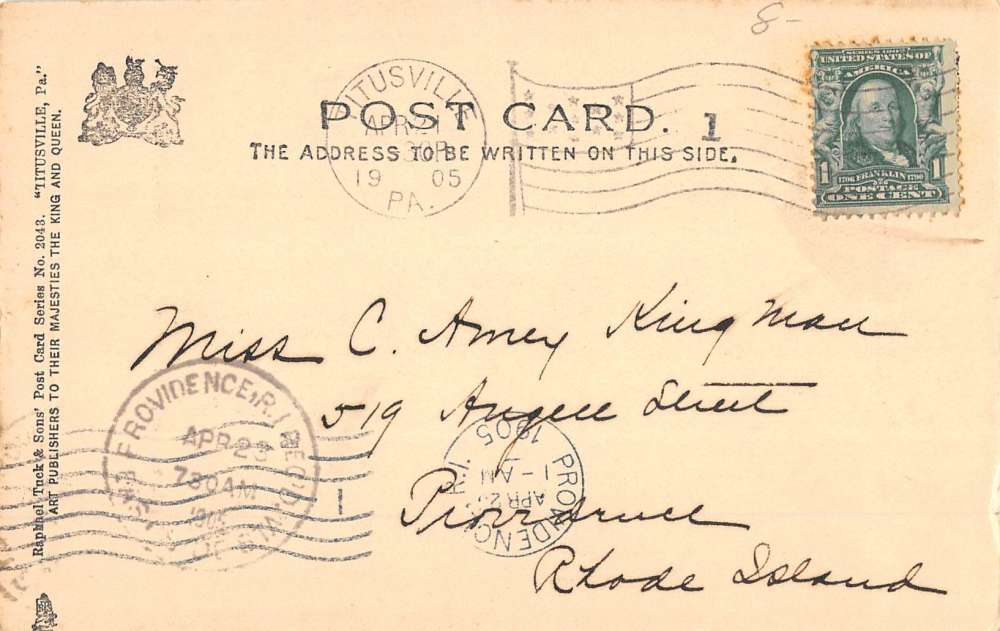 8-
POST CARD.
THE ADDRESS TO BE WRITTEN ON THIS SIDE.
TITUSVILLE
APR
1905
PA.
1
SERIES 1902
UNITED STATES OF
AMERICA
1706 FRANKLIN 1790
1 1
POSTAGE
ONE CENT
Raphael Tuck & Sons' Post Card Series No. 2043. "TITUSVILLE, Pa."
ART PUBLISHERS TO THEIR MAJESTIES THE KING AND QUEEN.
Miss C. Amey Kingman
519 Angell Street
Providence
Rhode Island
PROVIDENCE, R.I. REC'D.
APR 23
730 AM
1905
1
PROVIDENCE R.I.
APR 2
1-AM
1905